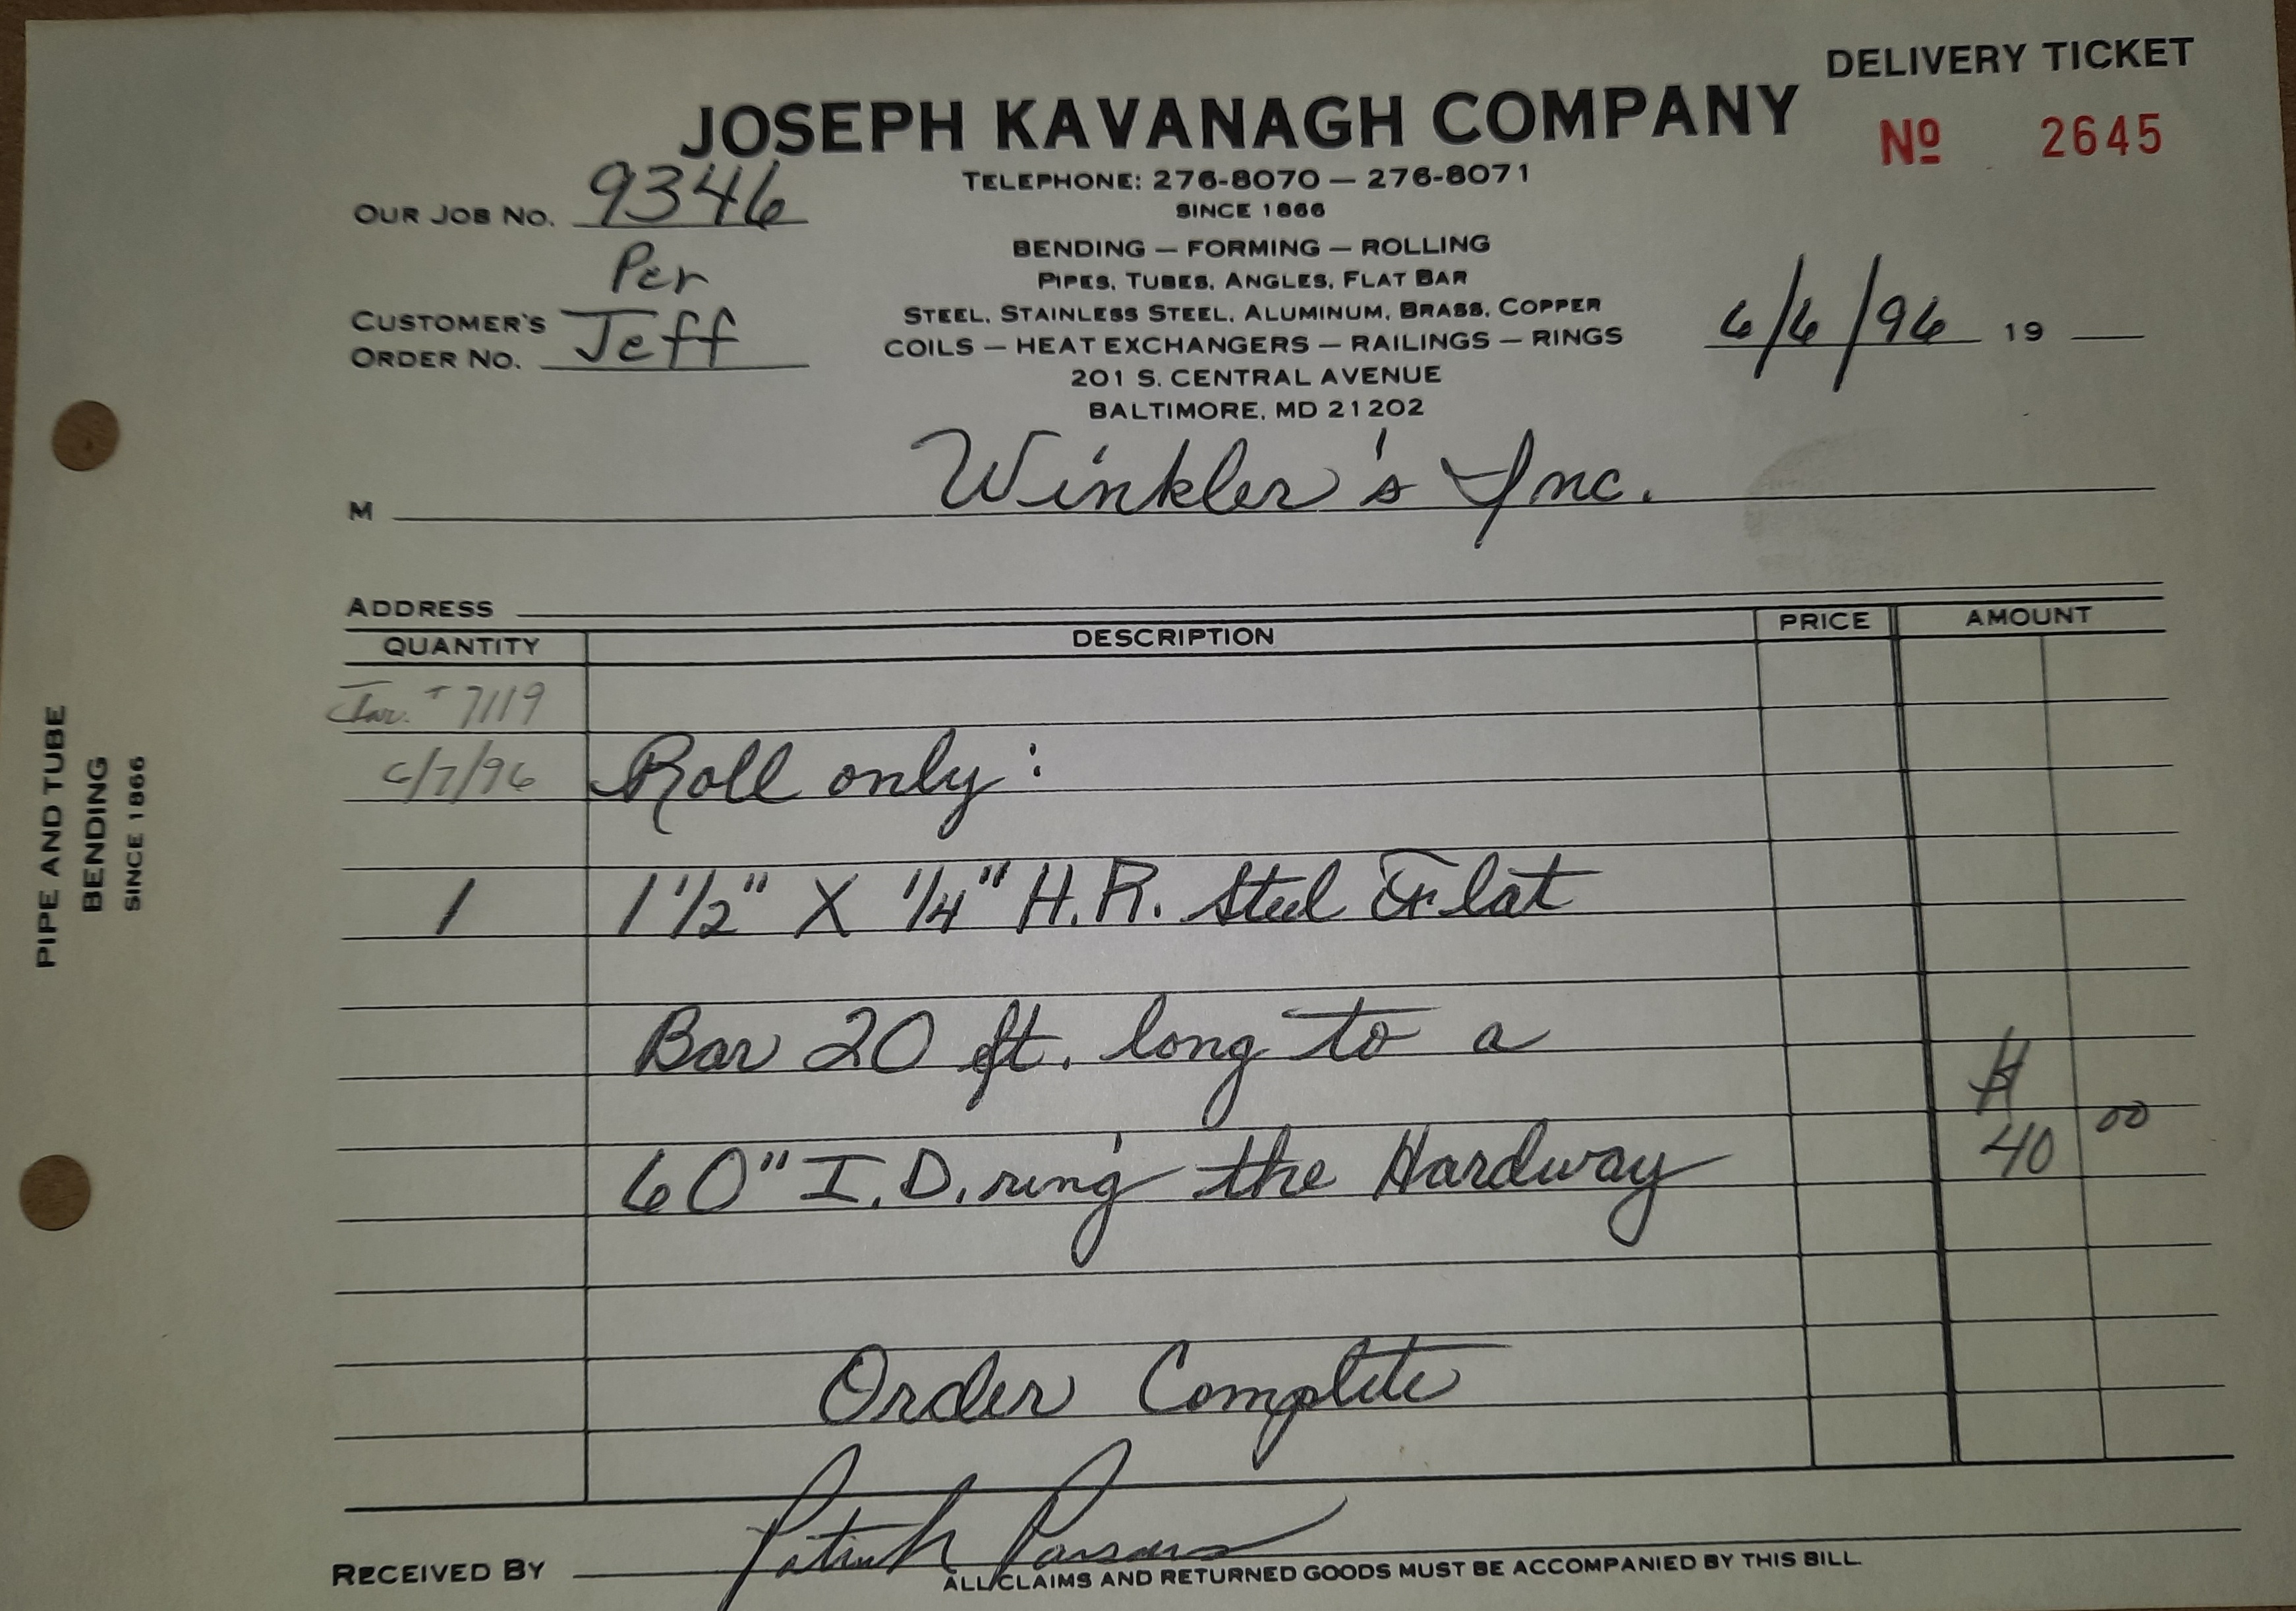 DELIVERY TICKET
JOSEPH KAVANAGH COMPANY
Nº 2645
TELEPHONE: 276-8070 — 276-8071
SINCE 1866
OUR JOB NO. 9346
BENDING — FORMING — ROLLING
PIPES, TUBES, ANGLES, FLAT BAR
STEEL, STAINLESS STEEL, ALUMINUM, BRASS, COPPER
COILS — HEAT EXCHANGERS — RAILINGS — RINGS
201 S. CENTRAL AVENUE
BALTIMORE, MD 21202
Per
CUSTOMER'S
ORDER NO. Jeff
6/6/96 19
M Winkler's Inc.
ADDRESS
QUANTITY DESCRIPTION PRICE AMOUNT
Inv. # 7119
6/7/96 Roll only:
1 1 1/2" X 1/4" H.R. Steel Flat
Bar 20 ft. long to a
60" I.D. ring the Hardway $ 40 00
Order Complete
RECEIVED BY Patrick Parsons
ALL CLAIMS AND RETURNED GOODS MUST BE ACCOMPANIED BY THIS BILL.
PIPE AND TUBE
BENDING
SINCE 1866